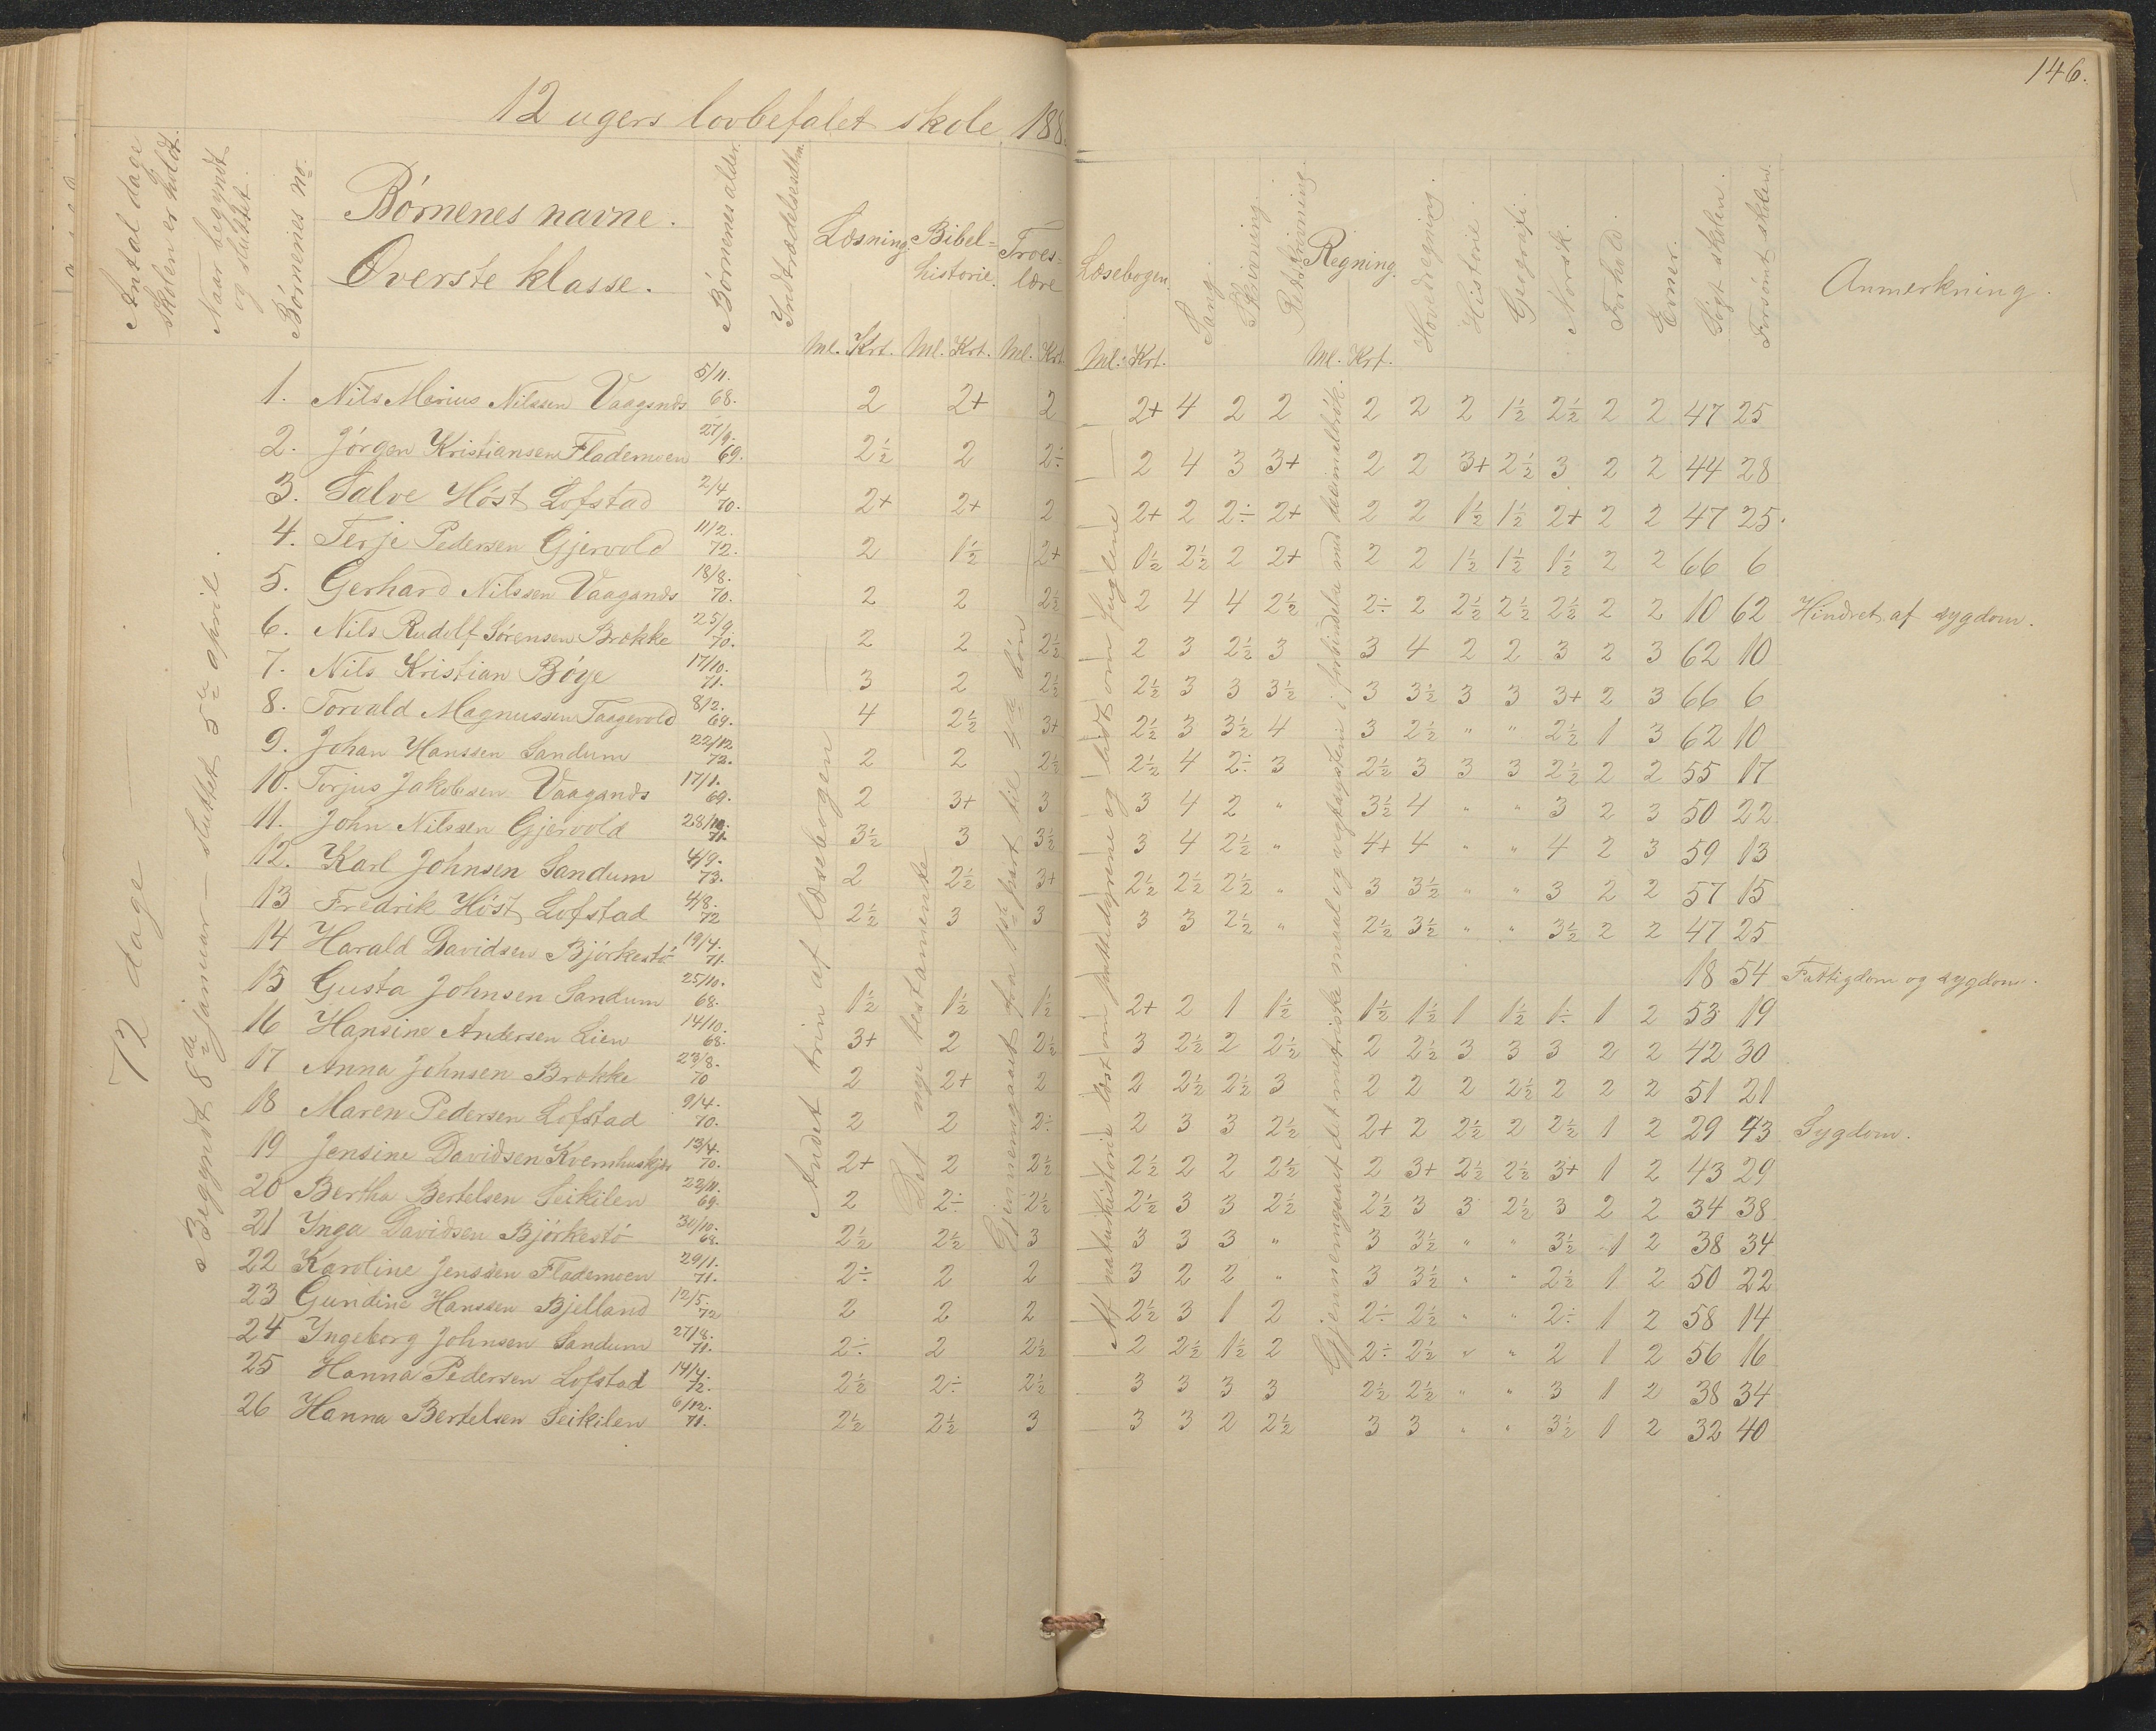 146.
12 ugers lovbefalet skole 188
Antal dage skolen er holdt.
Naar begyndt og sluttet.
Børnenes no.
Børnenes navne.
Øverste klasse.
Børnenes alder.
Indtrædelsesthm.
Læsning Ml. Krt.
Bibelhistorie. Ml. Krt.
Troeslære Ml. Krt.
Læsebogen. Ml. Krt.
Sang.
Skrivning.
Retskrivning.
Regning. Ml. Krt.
Hovedregning.
Historie.
Geografi.
Norsk.
Forhold.
Evner.
Søgt skolen.
Forsømt skolen.
Anmerkning.
72 dage
Begyndt 8de januar – sluttet 5te april.
Andet trin af læsebogen
Det nye testamente
Gjennemgaaet fra 1ste part til 4de bøn
Af naturhistorie læst om pattedyrene og lidt om fuglene
Gjennemgaaet det metriske maal og vegtsystem i forbindelse med decimalbrøk.
1. Nils Marius Nilssen Vaagsnes 5/11. 68. 2 2+ 2 2+ 4 2 2 2 2 2 1½ 2½ 2 2 47 25
2. Jørgen Kristiansen Flademoen 27/9. 69. 2½ 2 2÷ 2 4 3 3+ 2 2 3+ 2½ 3 2 2 44 28
3. Salve Høst Lofstad 2/4 70. 2+ 2+ 2 2+ 2 2÷ 2+ 2 2 1½ 1½ 2+ 2 2 47 25.
4. Terje Pedersen Gjervold 11/2. 72. 2 1½ 2+ 1½ 2½ 2 2+ 2 2 1½ 1½ 1½ 2 2 66 6
5. Gerhard Nilssen Vaagsnes 18/8. 70. 2 2 2½ 2 4 4 2½ 2÷ 2 2½ 2½ 2½ 2 2 10 62 Hindret af sygdom.
6. Nils Rudolf Sørensen Brokke 25/9 70. 2 2 2½ 2 3 2½ 3 3 4 2 2 3 2 3 62 10
7. Nils Kristian Bøye 17/10. 71. 3 2 2½ 2½ 3 3 3½ 3 3½ 3 3 3+ 2 3 66 6
8. Torvald Magnussen Taagevold 8/2. 69. 4 2½ 3+ 2½ 3 3½ 4 3 2½ " " 2½ 1 3 62 10
9. Johan Hanssen Sandum 22/12 72. 2 2 2½ 2½ 4 2÷ 3 2½ 3 3 3 2½ 2 2 55 17
10. Torjus Jakobsen Vaagsnes 17/1. 69. 2 3+ 3 3 4 2 " 3½ 4 " " 3 2 3 50 22
11. John Nilssen Gjervold 28/10. 71. 3½ 3 3½ 3 4 2½ " 4+ 4 " " 4 2 3 59 13
12. Karl Johnsen Sandum 4/9. 73. 2 2½ 3+ 2½ 2½ 2½ " 3 3½ " " 3 2 2 57 15
13 Fredrik Høst Lofstad 4/8. 72 2½ 3 3 3 3 2½ " 2½ 3½ " " 3½ 2 2 47 25
14 Harald Davidsen Bjørkestø 19/4. 71. 18 54 Fattigdom og sygdom.
15 Gusta Johnsen Sandum 25/10. 68. 1½ 1½ 1½ 2+ 2 1 1½ 1½ 1½ 1 1½ 1÷ 1 2 53 19
16 Hansine Andersen Lien 14/10. 68. 3+ 2 2½ 3 2½ 2 2½ 2 2½ 3 3 3 2 2 42 30
17 Anna Johnsen Brokke 23/8. 70 2 2+ 2 2 2½ 2½ 3 2 2 2 2½ 2 2 2 51 21
18 Maren Pedersen Lofstad 9/4. 70. 2 2 2÷ 2 3 3 2½ 2+ 2 2½ 2 2½ 1 2 29 43 Sygdom.
19 Jensine Davidsen Kvernhuskjær 13/4. 70. 2+ 2 2½ 2½ 2 2 2½ 2 3+ 2½ 2½ 3+ 1 2 43 29
20 Bertha Bertelsen Seikilen 22/11. 69. 2 2÷ 2½ 2½ 3 3 2½ 2½ 3 3 2½ 3 2 2 34 38
21 Ynga Davidsen Bjørkestø 30/10. 68. 2½ 2½ 3 3 3 3 " 3 3½ " " 3½ 1 2 38 34
22 Karoline Jenssen Flademoen 29/1. 71. 2÷ 2 2 3 2 2 " 3 3½ " " 2½ 1 2 50 22
23 Gundine Hanssen Bjelland 12/5. 72 2 2 2 2½ 3 1 2 2÷ 2½ " " 2÷ 1 2 58 14
24 Yngeborg Johnsen Sandum 27/8. 71. 2÷ 2 2½ 2 2½ 1½ 2 2÷ 2½ " " 2 1 2 56 16
25 Hanna Pedersen Lofstad 14/4. 72. 2½ 2÷ 2½ 3 3 3 3 2½ 2½ " " 3 1 2 38 34
26 Hanna Bertelsen Seikilen 6/12. 71. 2½ 2½ 3 3 3 2 2½ 3 3 " " 3½ 1 2 32 40